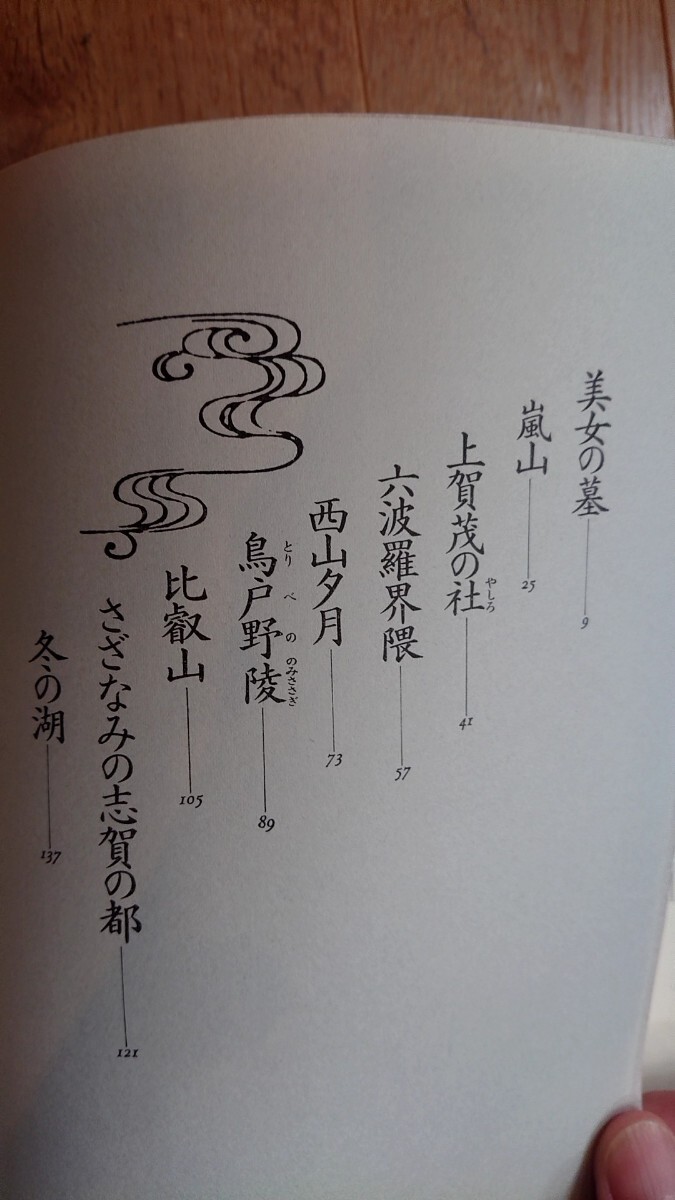 美女の墓 9
嵐山 25
上賀茂の社 41
やしろ
六波羅界隈 57
西山夕月 73
鳥戸野陵 89
とりべの のみささぎ
比叡山 105
さざなみの志賀の都 121
冬の湖 137